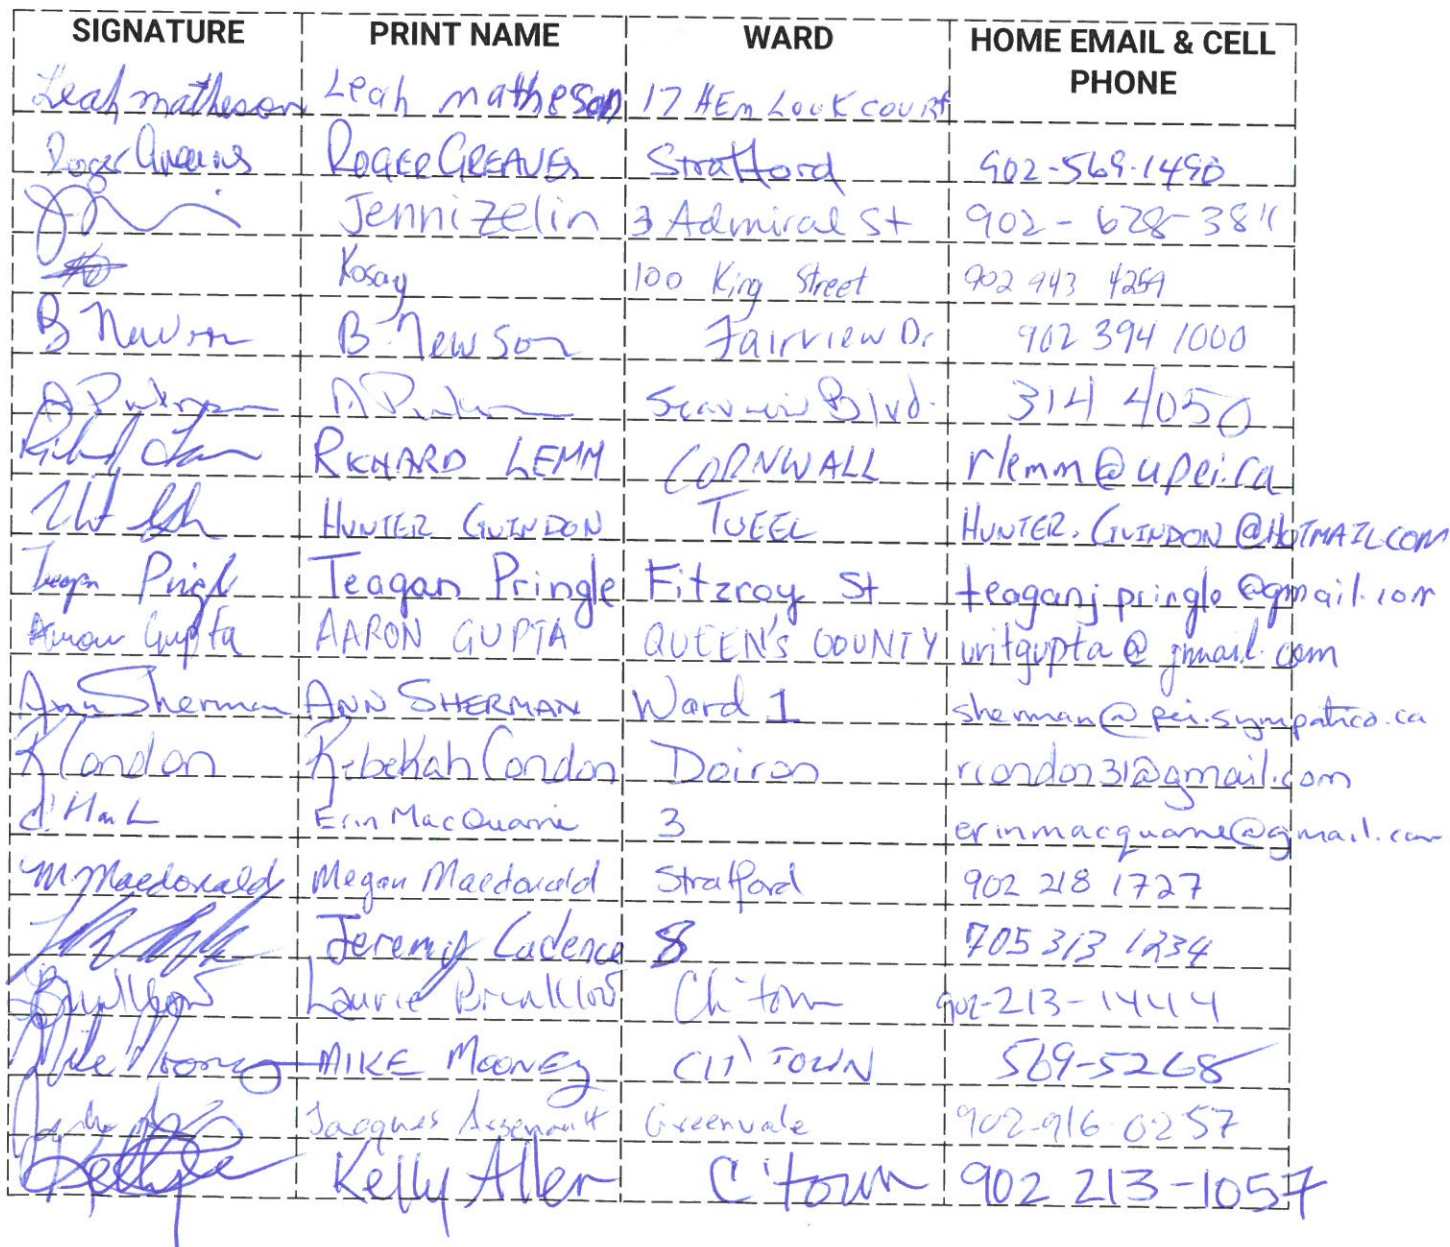 SIGNATURE PRINT NAME WARD HOME EMAIL & CELL
PHONE
Leah matheson Leah matheson 17 HEmLOCK COURT
Roger Greaves ROGER GREAVES Stratford 902-569-1490
Jenni Zelin 3 Admiral St 902-628-3811
Kosay 100 King Street 902 943 4259
B Newson B Newson Fairview Dr 902 394 1000
A Blvd. 314 4050
RICHARD LEMM CORNWALL rlemm@upei.ca
HUNTER GUINDON TUEEL HUNTER.GUINDON@HOTMAIL.COM
Teagan Pringle Fitzroy St teaganjpringle@gmail.com
Aaron Gupta AARON GUPTA QUEEN'S COUNTY writgupta@gmail.com
Ann Sherman ANN SHERMAN Ward 1 sherman@pei.sympatico.ca
R Condon Rebekah Condon Doiron rcondon31@gmail.com
Erin MacQuarrie 3 erinmacquarrie@gmail.com
M. Macdonald Megan Macdonald Stratford 902 218 1727
Jeremy Cadence 8 705 313 1234
Laurie Ch'town 902-213-1444
Mike Mooney MIKE MOONEY CH'TOWN 569-5268
Jacques Arsenault Greenvale 902-916-0257
Kelly Allen C'town 902 213-1057